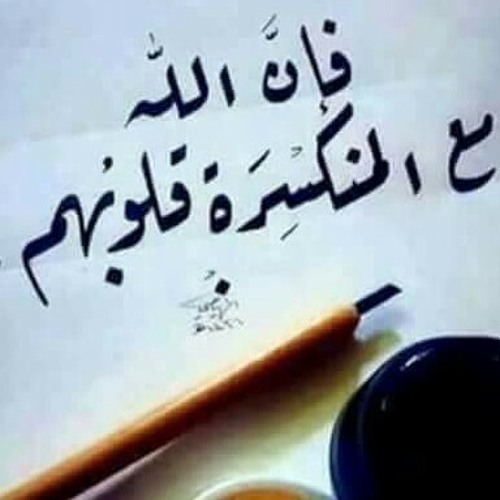 فإنَّ اللّٰه
مع المنكْسِرَة قلوبُهم